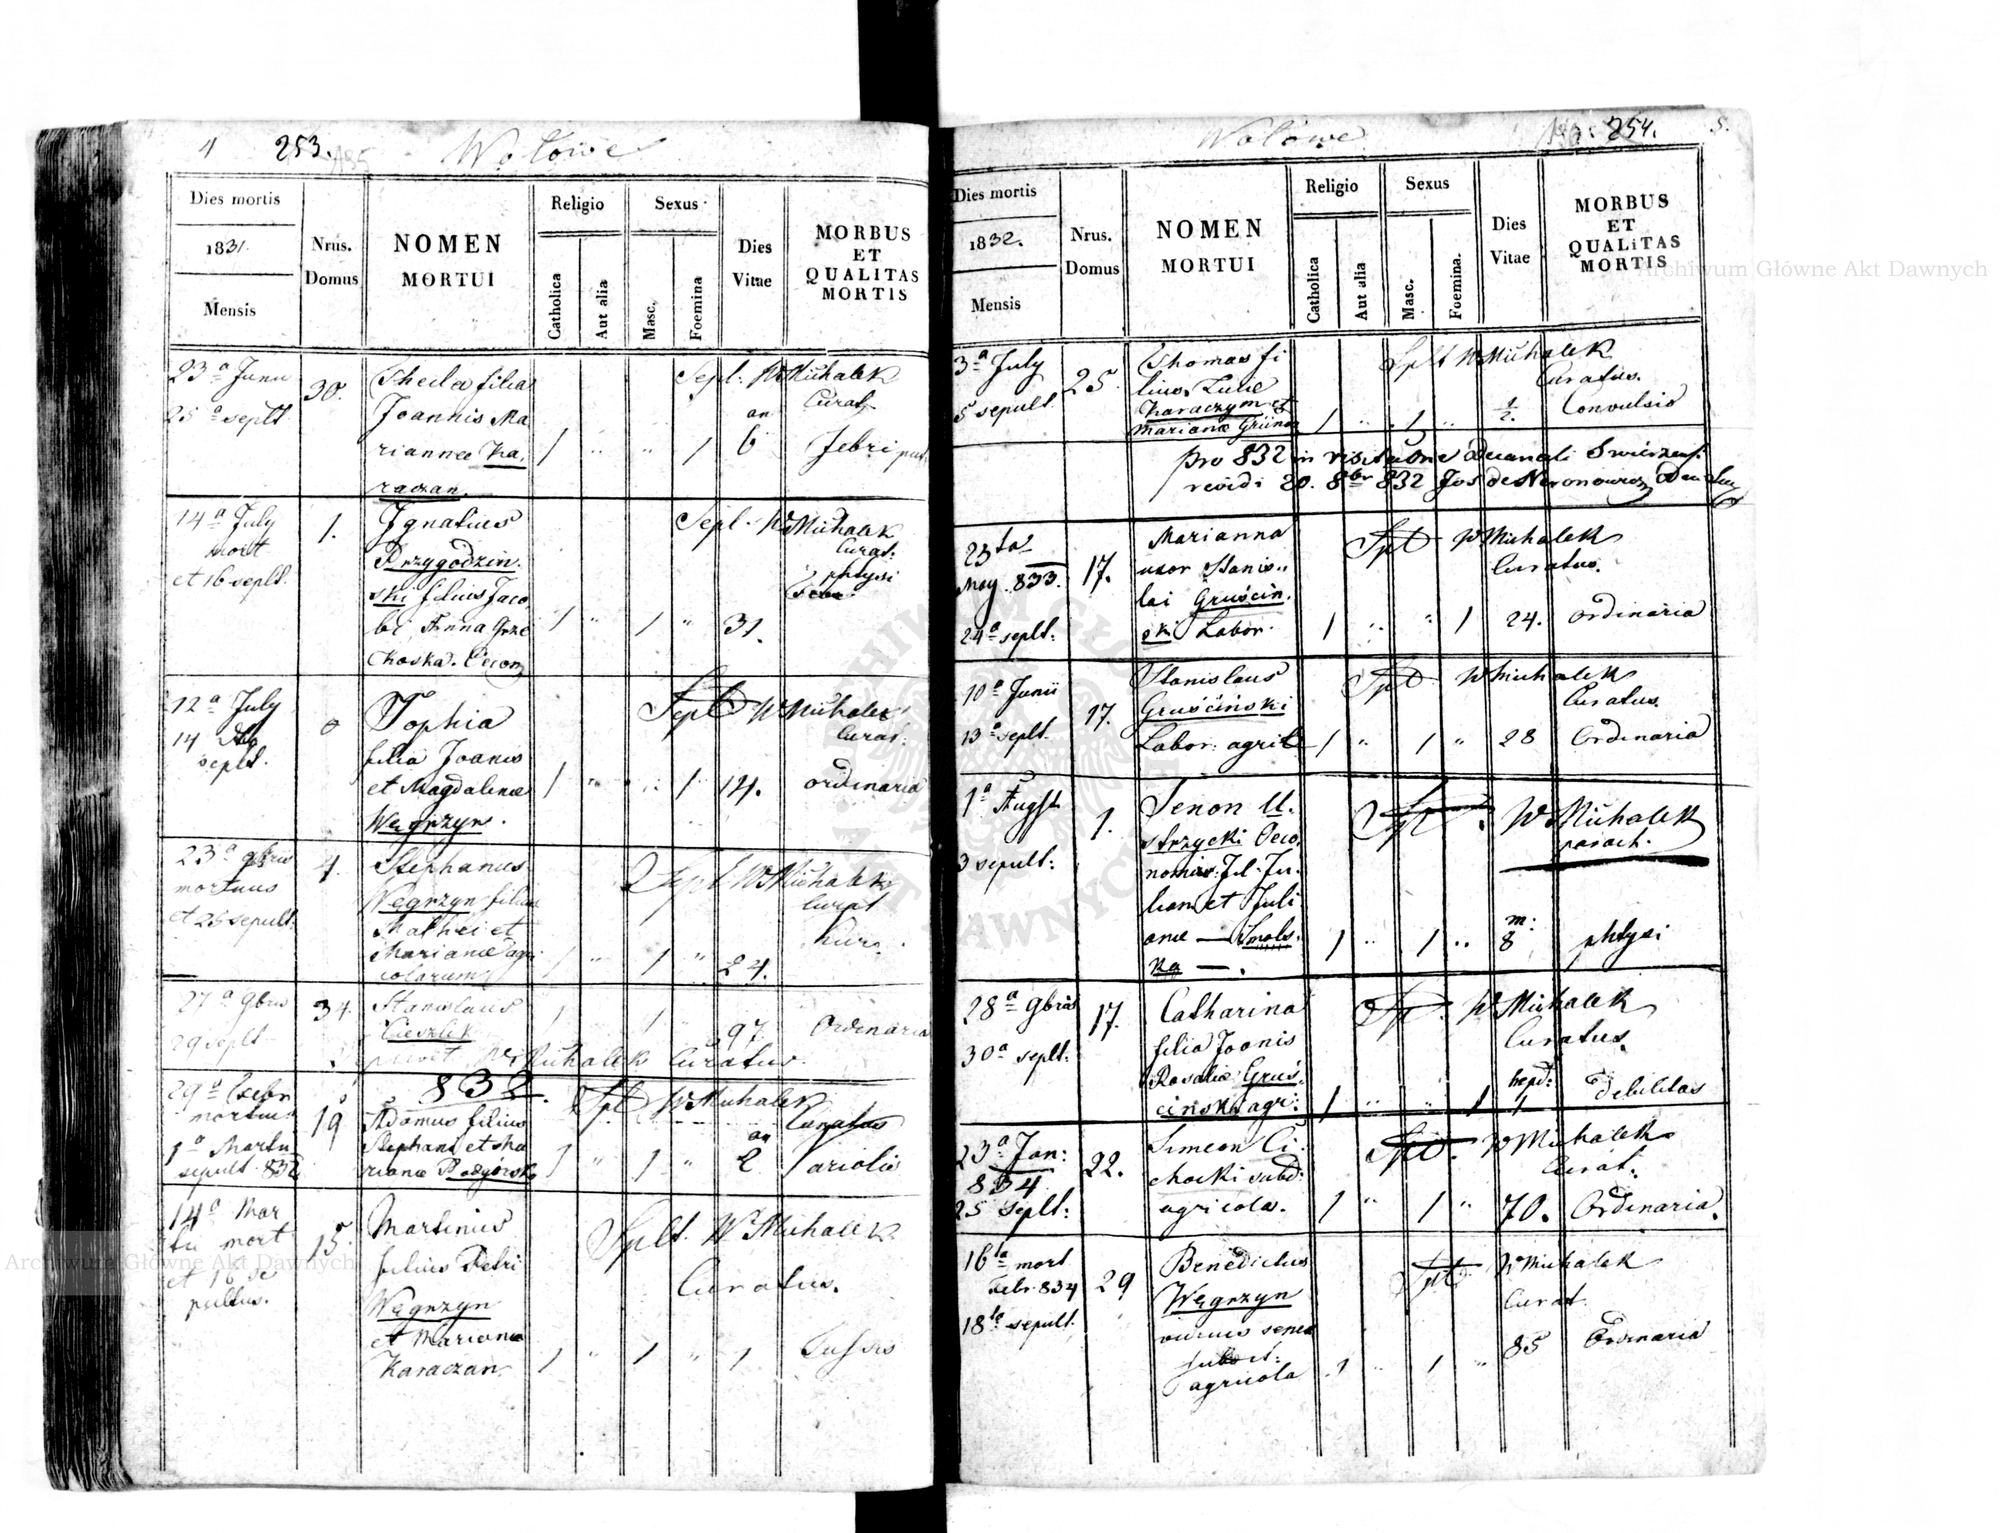 4 253. 185 Wołowe
Dies mortis
1831.
Mensis
Nrus.
Domus
NOMEN
MORTUI
Religio
Catholica
Aut alia
Sexus
Masc.
Foemina
Dies
Vitae
MORBUS
ET
QUALITAS
MORTIS
23a Junii
25a seplt
30.
filia
Joannis Ma
riannae Ka,
raczan.
Sepl: W Michalek
Curat
an
1 " " 1 6 febri put.
14a July
mort
et 16 seplt.
1.
Ignatius
Przygodzin.
ski filius Jaco
bi Anna Grze
choska. Oecon
Sepl. W Michalek
Curat.
phtysi
1 " 1 " 31.
12a July
14
seplt.
0
Sophia
filia Joanis
et Magdalenae
Węgrzyn.
Seplt W Michalek
Curat.
1 " " 1 14. ordinaria
23a 9bris
mortuus
et 25 sepult.
4.
Stephanus
Węgrzyn filius
Mathei et
Marianae agri
colarum
Sepl W Michalek
Curat
1 " 1 " 24.
27a 9bris
29 seplt
34.
Stanislaus
Cieszlik
1 1 97 Ordinaria
Sepelivit W Michalek Curatus.
832.
29a Xcebr
mortuus
1a Martii
sepult. 832
19
Adamus filius
Stephani et Ma
rianae Podgórsk
Splt W Michalek
Curatus
an
1 " 1 " 2 Variolis
14a Mar
tii mort
et 16 se
pultus.
15.
Martinus
filius Petri
Węgrzyn
et Mariana
Karaczan
Splt. W Michalek
Curatus.
1 " 1 " 1 Tussis
Wołowe 254. 5.
Dies mortis
1832.
Mensis
Nrus.
Domus
NOMEN
MORTUI
Religio
Catholica
Aut alia
Sexus
Masc.
Foemina.
Dies
Vitae
MORBUS
ET
QUALiTAS
MORTIS
3a July
5 sepult.
25.
Thomas fi
lius Lucae
Karaczym et
Marianae Grün
Splt W Michalek
Curatus.
1 " 1 " 1/2. Convulsio
pro 832 in visitatione Decanali Swirzens.
revidi 20. 8br 832 Jos de Neronowicz
23ta
May. 833.
24a seplt:
17.
Marianna
uxor Stanis„
lai Gruścin.
ski Labor.
Splt W Michalek
Curatus.
1 " " 1 24. ordinaria
10a Junii
13a seplt.
17.
Stanislaus
Gruściński
Labor: agric
Splt W Michalek
Curatus.
1 " 1 " 28 Ordinaria
1a Augst
3 sepult:
1.
Zenon U.
strzycki Oeco
nomus: fil: Ju.
lian et Juli
anae — Smols.
ka —.
Splt. W Michalek
paroch.
m:
1 " 1 " 8 phtysi
28a 9bris
30a seplt:
17.
Catharina
filia Joanis
Rosaliae Gruś.
cinski agr:
Splt W Michalek
Curatus.
hepd:
1 " " 1 1 debilitas
23a Jan:
834
25 Seplt:
22.
Simeon Ci
chocki subd:
agricola.
Splt. W Michalek
Curat.
1 " 1 " 70. Ordinaria.
16ta mort
Febr. 834
18ta sepult.
29
Benedictus
Węgrzyn
viduus senex
agricola
Splt: W Michalek
Curat.
1 " 1 " 85 Ordinaria
Archiwum Główne Akt Dawnych
Archiwum Główne Akt Dawnych
ARCHIWUM GŁÓWNE AKT DAWNYCH